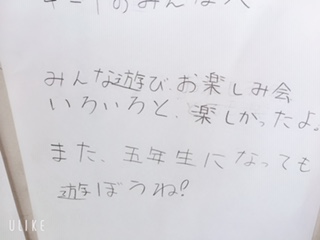 のみんなへ
みんな遊び、お楽しみ会
いろいろと、楽しかったよ。
また、五年生になっても
遊ぼうね!
ULIKE